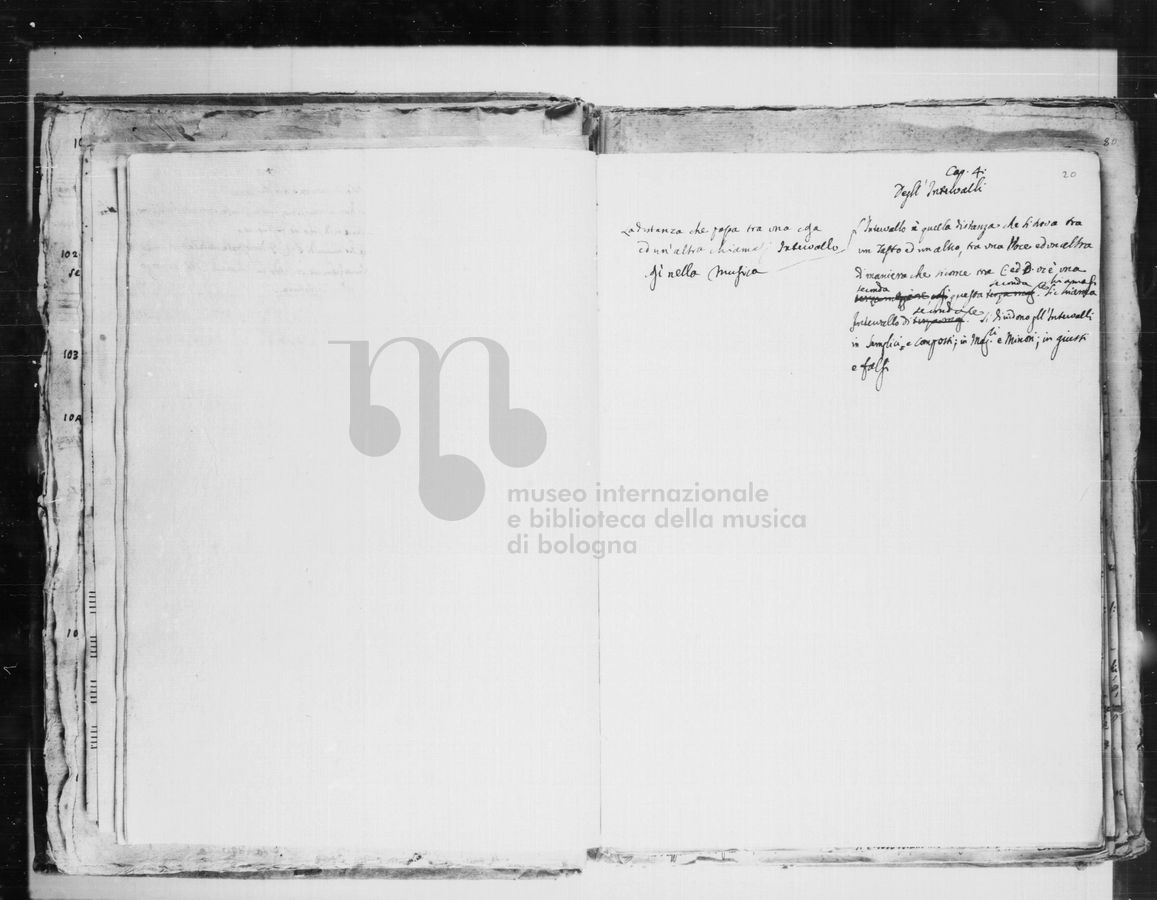 80
20
Cap. 4.
Degl' Intervalli
La distanza che passa tra una cosa
ed un'altra chiamasi Intervallo
sì nella Musica
L'Intervallo è quella distanza che si trova tra
un Tasto ed un altro, tra una Voce ed un altra
di maniera che siccome tra C ed D vi è una
seconda questa seconda si chiama
Intervallo di seconda. Si dividono gll'Intervalli
in Semplici, e Composti; in Mag.ri e Minori; in giusti
e falsi
102
se
103
10A
10
museo internazionale
e biblioteca della musica
di bologna